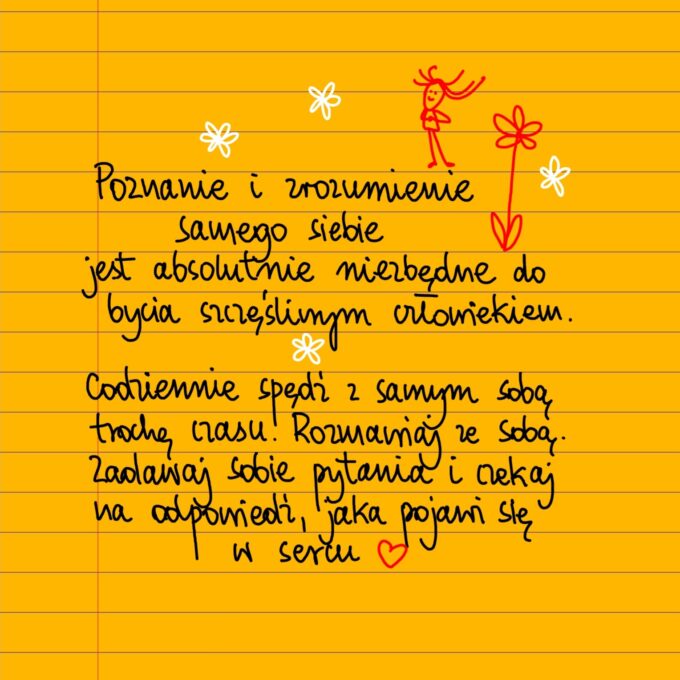 Poznanie i zrozumienie
samego siebie
jest absolutnie niezbędne do
bycia szczęśliwym człowiekiem.
Codziennie spędź z samym sobą
trochę czasu. Rozmawiaj ze sobą.
Zadawaj sobie pytania i czekaj
na odpowiedź, jaka pojawi się
w sercu